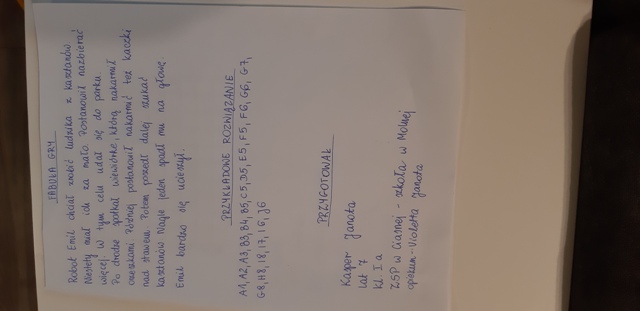 FABUŁA GRY
Robot Emil chciał zrobić ludzika z kasztanów.
Niestety miał ich za mało. Postanowił nazbierać
więcej. W tym celu udał się do parku.
Po drodze spotkał wiewiórkę, którą nakarmił
orzeszkami. Później postanowił nakarmić też kaczki
nad stawem. Potem poszedł dalej szukać
kasztanów. Nagle jeden spadł mu na głowę.
Emil bardzo się ucieszył.
PRZYKŁADOWE ROZWIĄZANIE
A1, A2, A3, B3, B4, B5, C5, D5, E5, F5, F6, G6, G7,
G8, H8, I8, I7, I6, J6
PRZYGOTOWAŁ
Kasper Janota
lat 7
kl. I a
ZSP w Ciasnej - szkoła w Molnej
opiekun - Violetta Janota